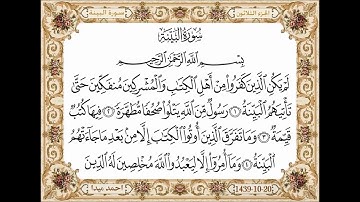 الجزء الثلاثون
سورة البينة
سُورَةُ البَيِّنَة
بِسْمِ اللَّهِ الرَّحْمَٰنِ الرَّحِيمِ
لَمْ يَكُنِ الَّذِينَ كَفَرُوا مِنْ أَهْلِ الْكِتَابِ وَالْمُشْرِكِينَ مُنفَكِّينَ حَتَّىٰ
تَأْتِيَهُمُ الْبَيِّنَةُ ١ رَسُولٌ مِّنَ اللَّهِ يَتْلُو صُحُفًا مُّطَهَّرَةً ٢ فِيهَا كُتُبٌ
قَيِّمَةٌ ٣ وَمَا تَفَرَّقَ الَّذِينَ أُوتُوا الْكِتَابَ إِلَّا مِن بَعْدِ مَا جَاءَتْهُمُ
الْبَيِّنَةُ ٤ وَمَا أُمِرُوا إِلَّا لِيَعْبُدُوا اللَّهَ مُخْلِصِينَ لَهُ الدِّينَ
احمد بيدا
1439-10-20